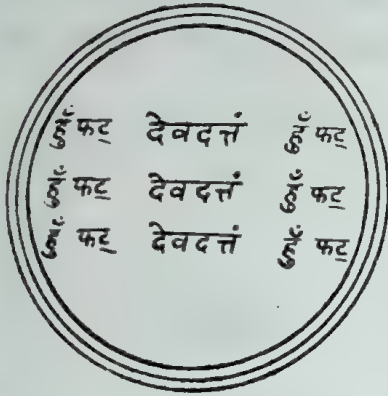 हूँ फट् देवदत्तं हूँ फट्
हूँ फट् देवदत्तं हूँ फट्
हूँ फट् देवदत्तं हूँ फट्